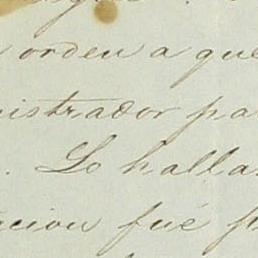 orden a que
nistrador pa
. Lo halla
cion fué